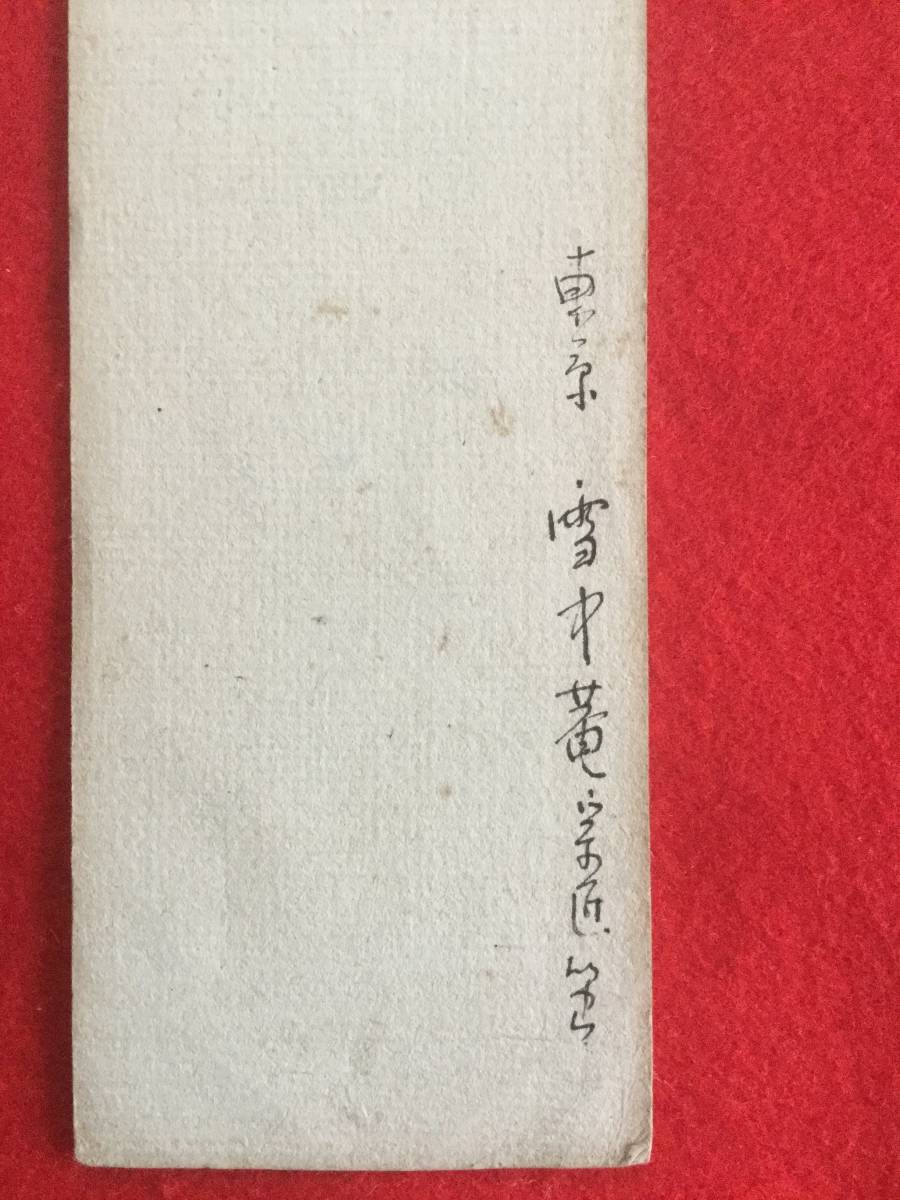 東京 雪中菴宗匠筆